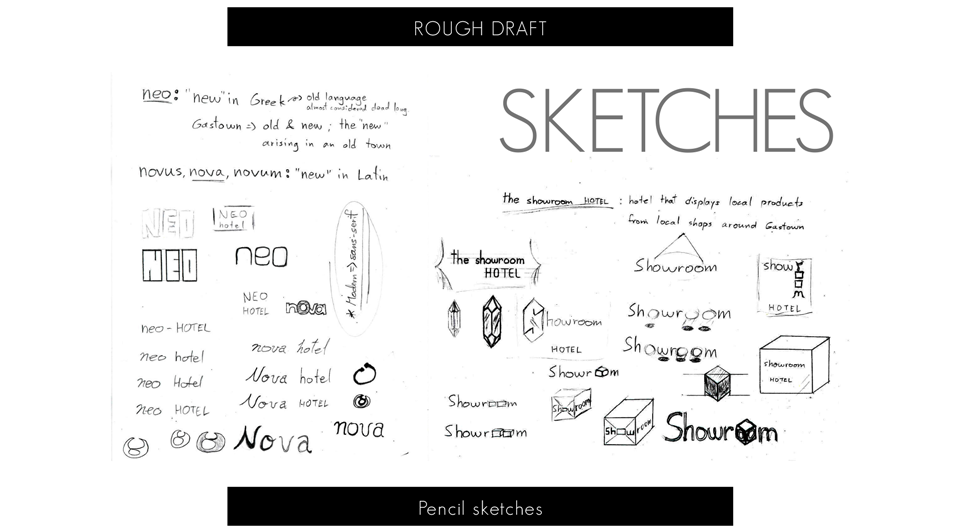 ROUGH DRAFT
neo: "new" in Greek => old language
almost considered dead lang.
Gastown => old & new ; the "new"
arising in an old town
novus, nova, novum: "new" in Latin
NEO
NEO
hotel
NEO
neo
* Modern => sans-serif
NEO
HOTEL
nova
neo - HOTEL
nova hotel
neo hotel
Nova hotel
neo Hotel
Nova HOTEL
neo HOTEL
Nova
nova
SKETCHES
the showroom HOTEL : hotel that displays local products
from local shops around Gastown
the showroom
HOTEL
Showroom
showroom
HOTEL
howroom
HOTEL
Showroom
Showroom
Showroom
showroom
HOTEL
Showroom
Showroom
Showroom
Showroom
Showroom
Pencil sketches